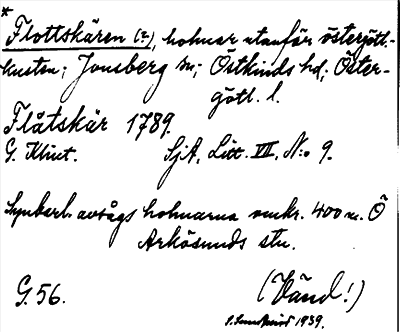 *
Flottskären (2), holmar utanför östergötl.-
kusten; Jonsberg sn; Östkinds hd; Öster-
götl. l.
Flåtskär 1789.
G. Klint. SjA, Litt. VII, N:o 9.
Synbarl. avsågs holmarna omkr. 400 m. Ö
Arkösunds stn.
G. 56. (Vänd!)
S. Sundkvist 1939.